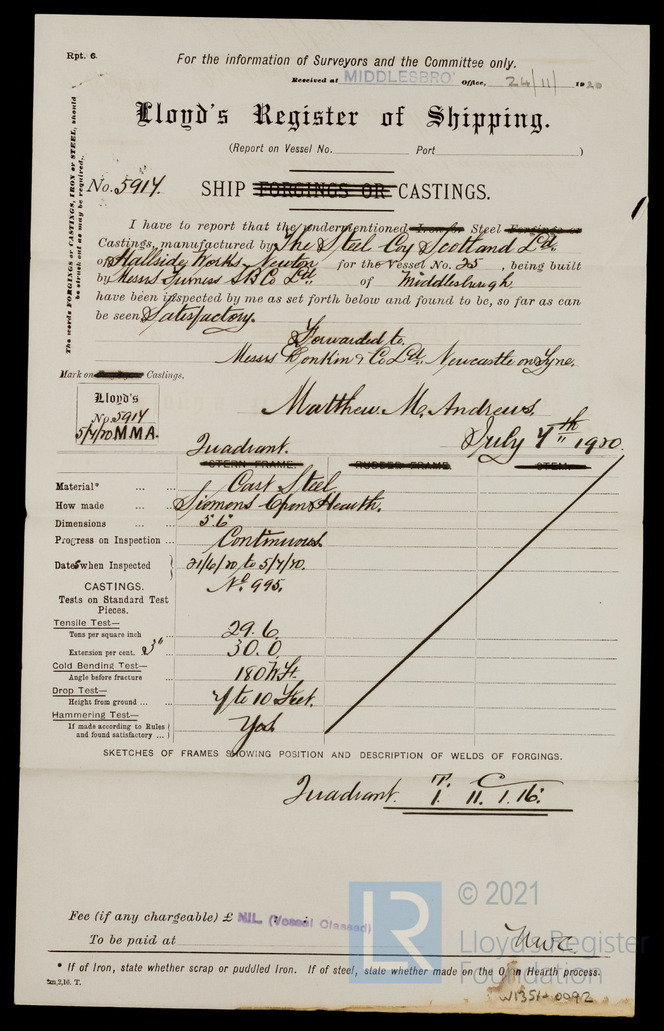 Rpt. 6.
For the information of Surveyors and the Committee only.
Received at MIDDLESBRO' Office, 24/11/1920
Lloyd's Register of Shipping.
(Report on Vessel No. Port )
The words FORGINGS or CASTINGS, IRON or STEEL, should be struck out as may be required.
No. 5914. SHIP FORGINGS OR CASTINGS.
I have to report that the undermentioned Iron or Steel Forgings or
Castings, manufactured by The Steel Coy Scotland Ltd.
of Hallside Works Newton for the Vessel No. 25, being built
by Messrs Furness S.B. Co Ltd. of Middlesburgh.
have been inspected by me as set forth below and found to be, so far as can
be seen Satisfactory.
Forwarded to.
Messrs Donkin & Co Ltd. Newcastle on Tyne.
Mark on Castings.
Lloyd's
No. 5914
5/7/20 M.M.A.
Matthew M. Andrews.
July 7th 1920.
Quadrant.
STERN FRAME. RUDDER FRAME STEM.
Material* Cast Steel
How made Siemens Open Hearth.
Dimensions 5.6
Progress on Inspection Continuous
Dates when Inspected 21/6/20 to 5/7/20.
CASTINGS. No. 995.
Tests on Standard Test
Pieces.
Tensile Test—
Tons per square inch 29.6
Extension per cent. 3" 30.0
Cold Bending Test—
Angle before fracture 180
Drop Test—
Height from ground 7 to 10 Feet.
Hammering Test—
If made according to Rules and found satisfactory Yes
SKETCHES OF FRAMES SHOWING POSITION AND DESCRIPTION OF WELDS OF FORGINGS.
T. C
Quadrant. 1. 11. 1. 16.
© 2021
LR
Lloyd's Register
Foundation
Fee (if any chargeable) £ NIL. (Vessel Classed)
To be paid at
* If of Iron, state whether scrap or puddled Iron. If of steel, state whether made on the Open Hearth process.
2m,2,10. T.
W1351-0092